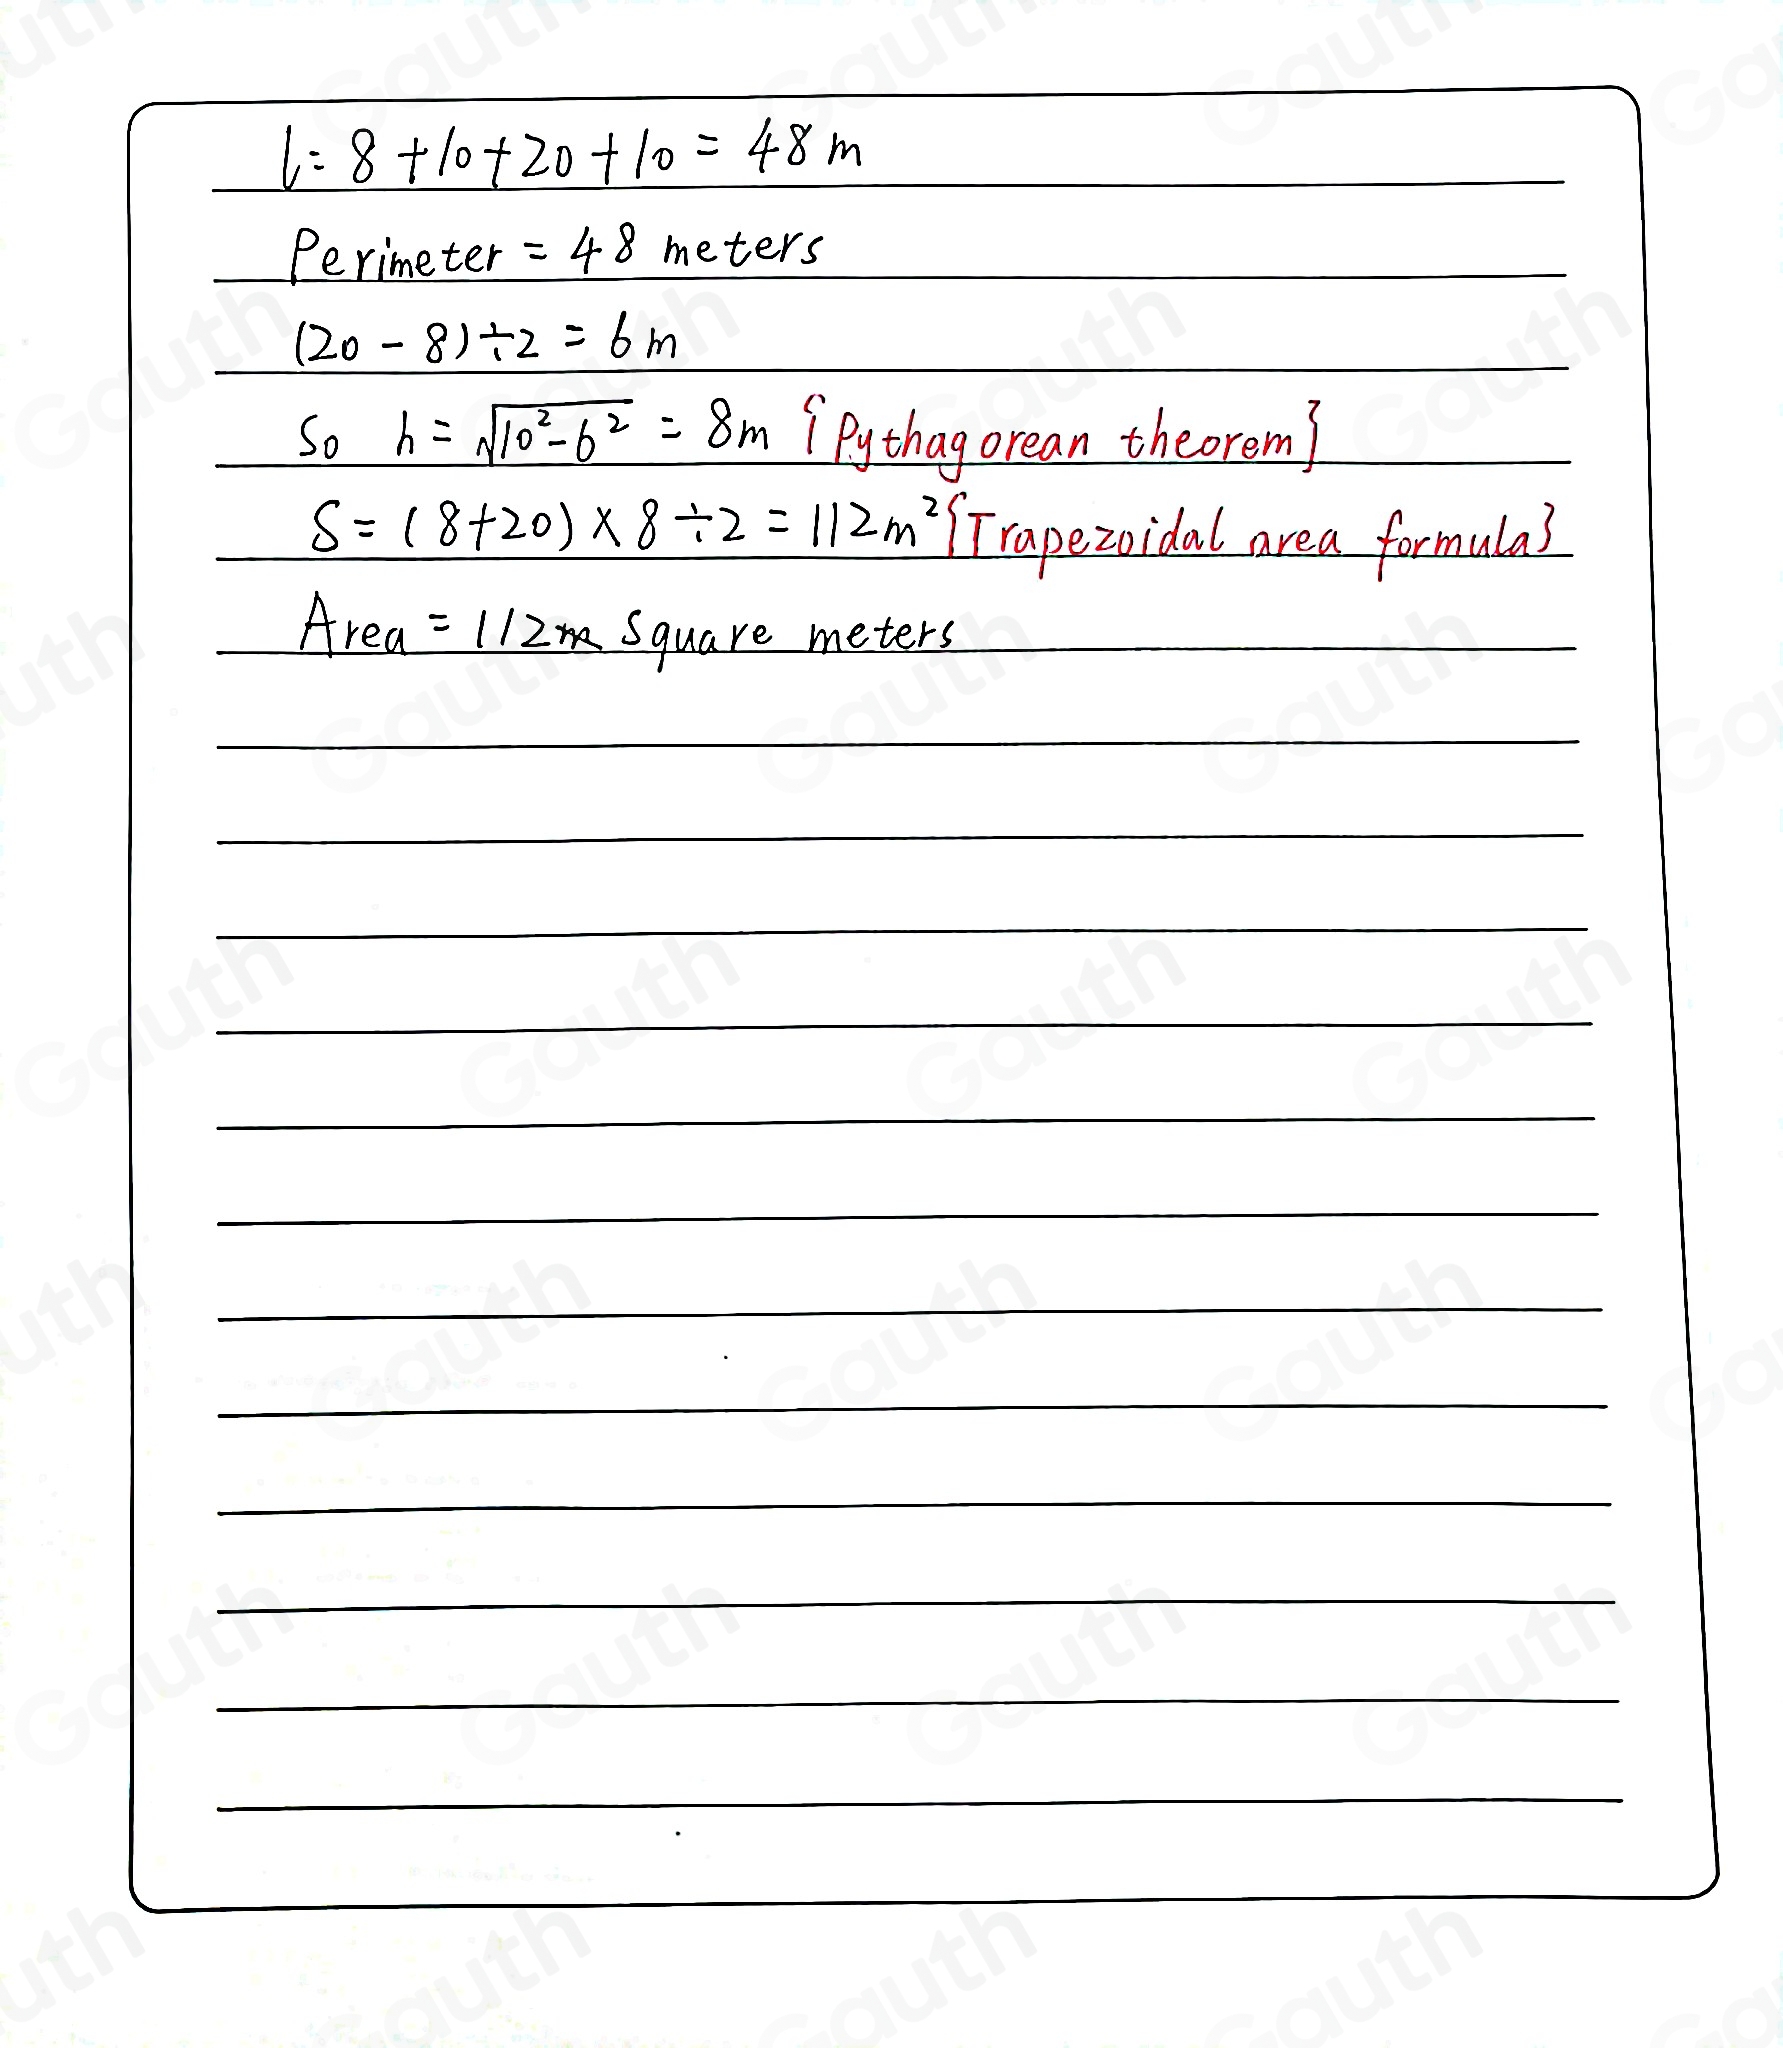 l = 8 + 10 + 20 + 10 = 48 m
Perimeter = 48 meters
(20 - 8) ÷ 2 = 6 m
So h = √(10² - 6²) = 8m {Pythagorean theorem}
S = (8 + 20) × 8 ÷ 2 = 112 m² {Trapezoidal area formula}
Area = 112 square meters